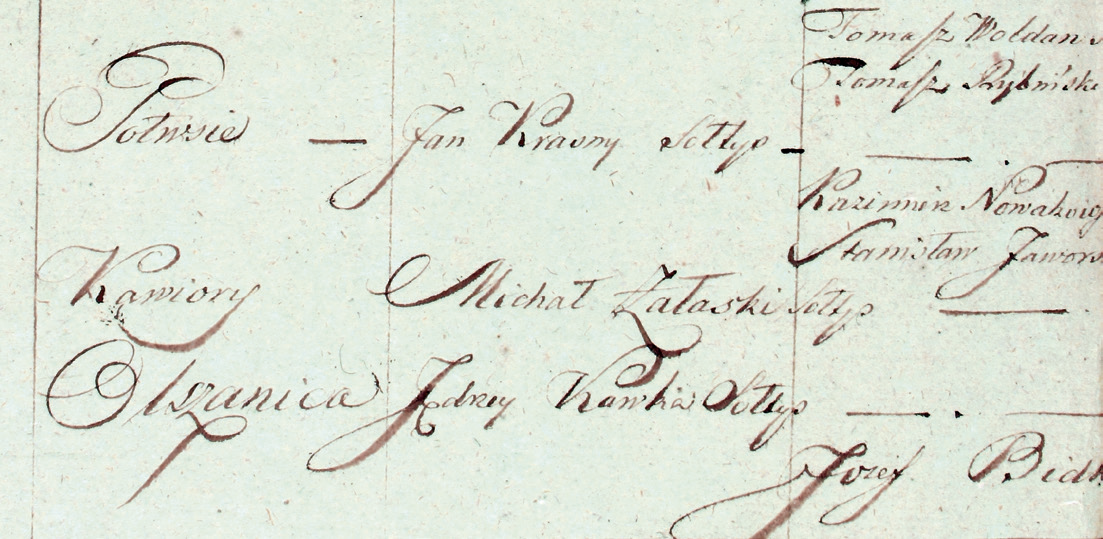 Tomasz Woldan
Tomasz Rybinski
Połwsie — Jan Krasny Sołtys — —
Kazimierz Nowakowic
Stanisław Jawors
Kawiory Michał Załaski Sołtys —
Olszanica Jędrzey Kawka Sołtys — . —
Jozef Bidk